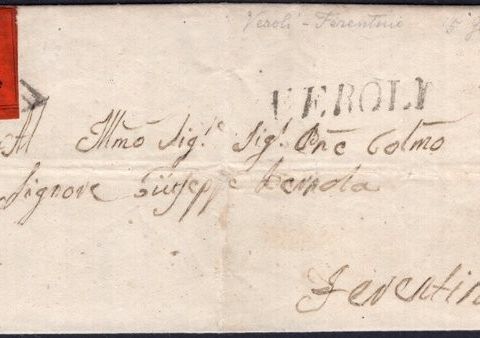 Veroli - Ferentino
VEROLI
Al Illmo Sig.e Sig.e Pne Colmo
Signore Giuseppe
Ferentin